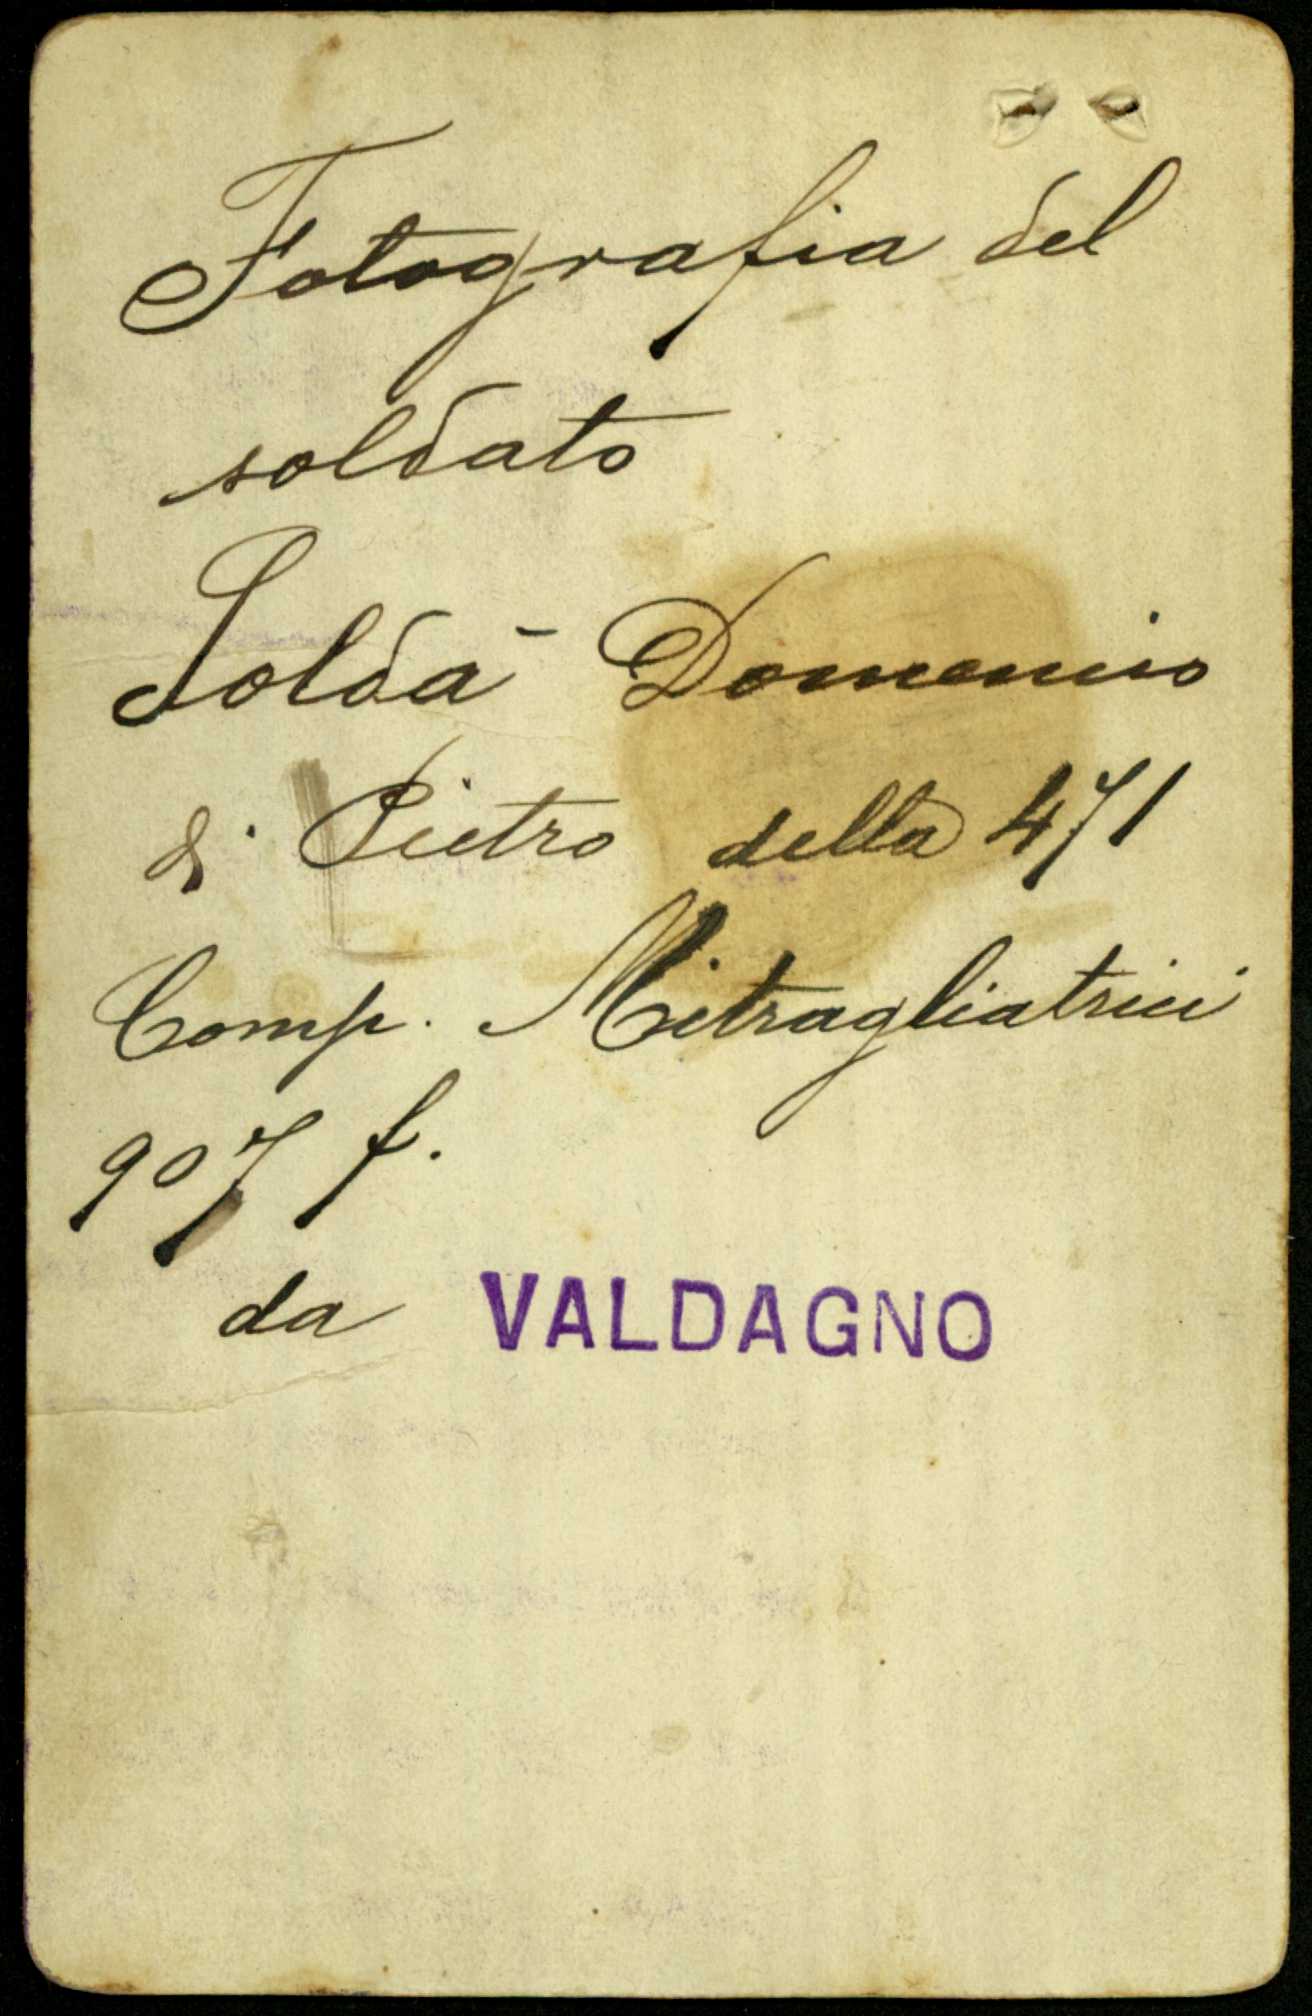 Fotografia del
soldato
Soldà Domenico
di Pietro della 471
Comp. Mitragliatrici
907 f.
da VALDAGNO